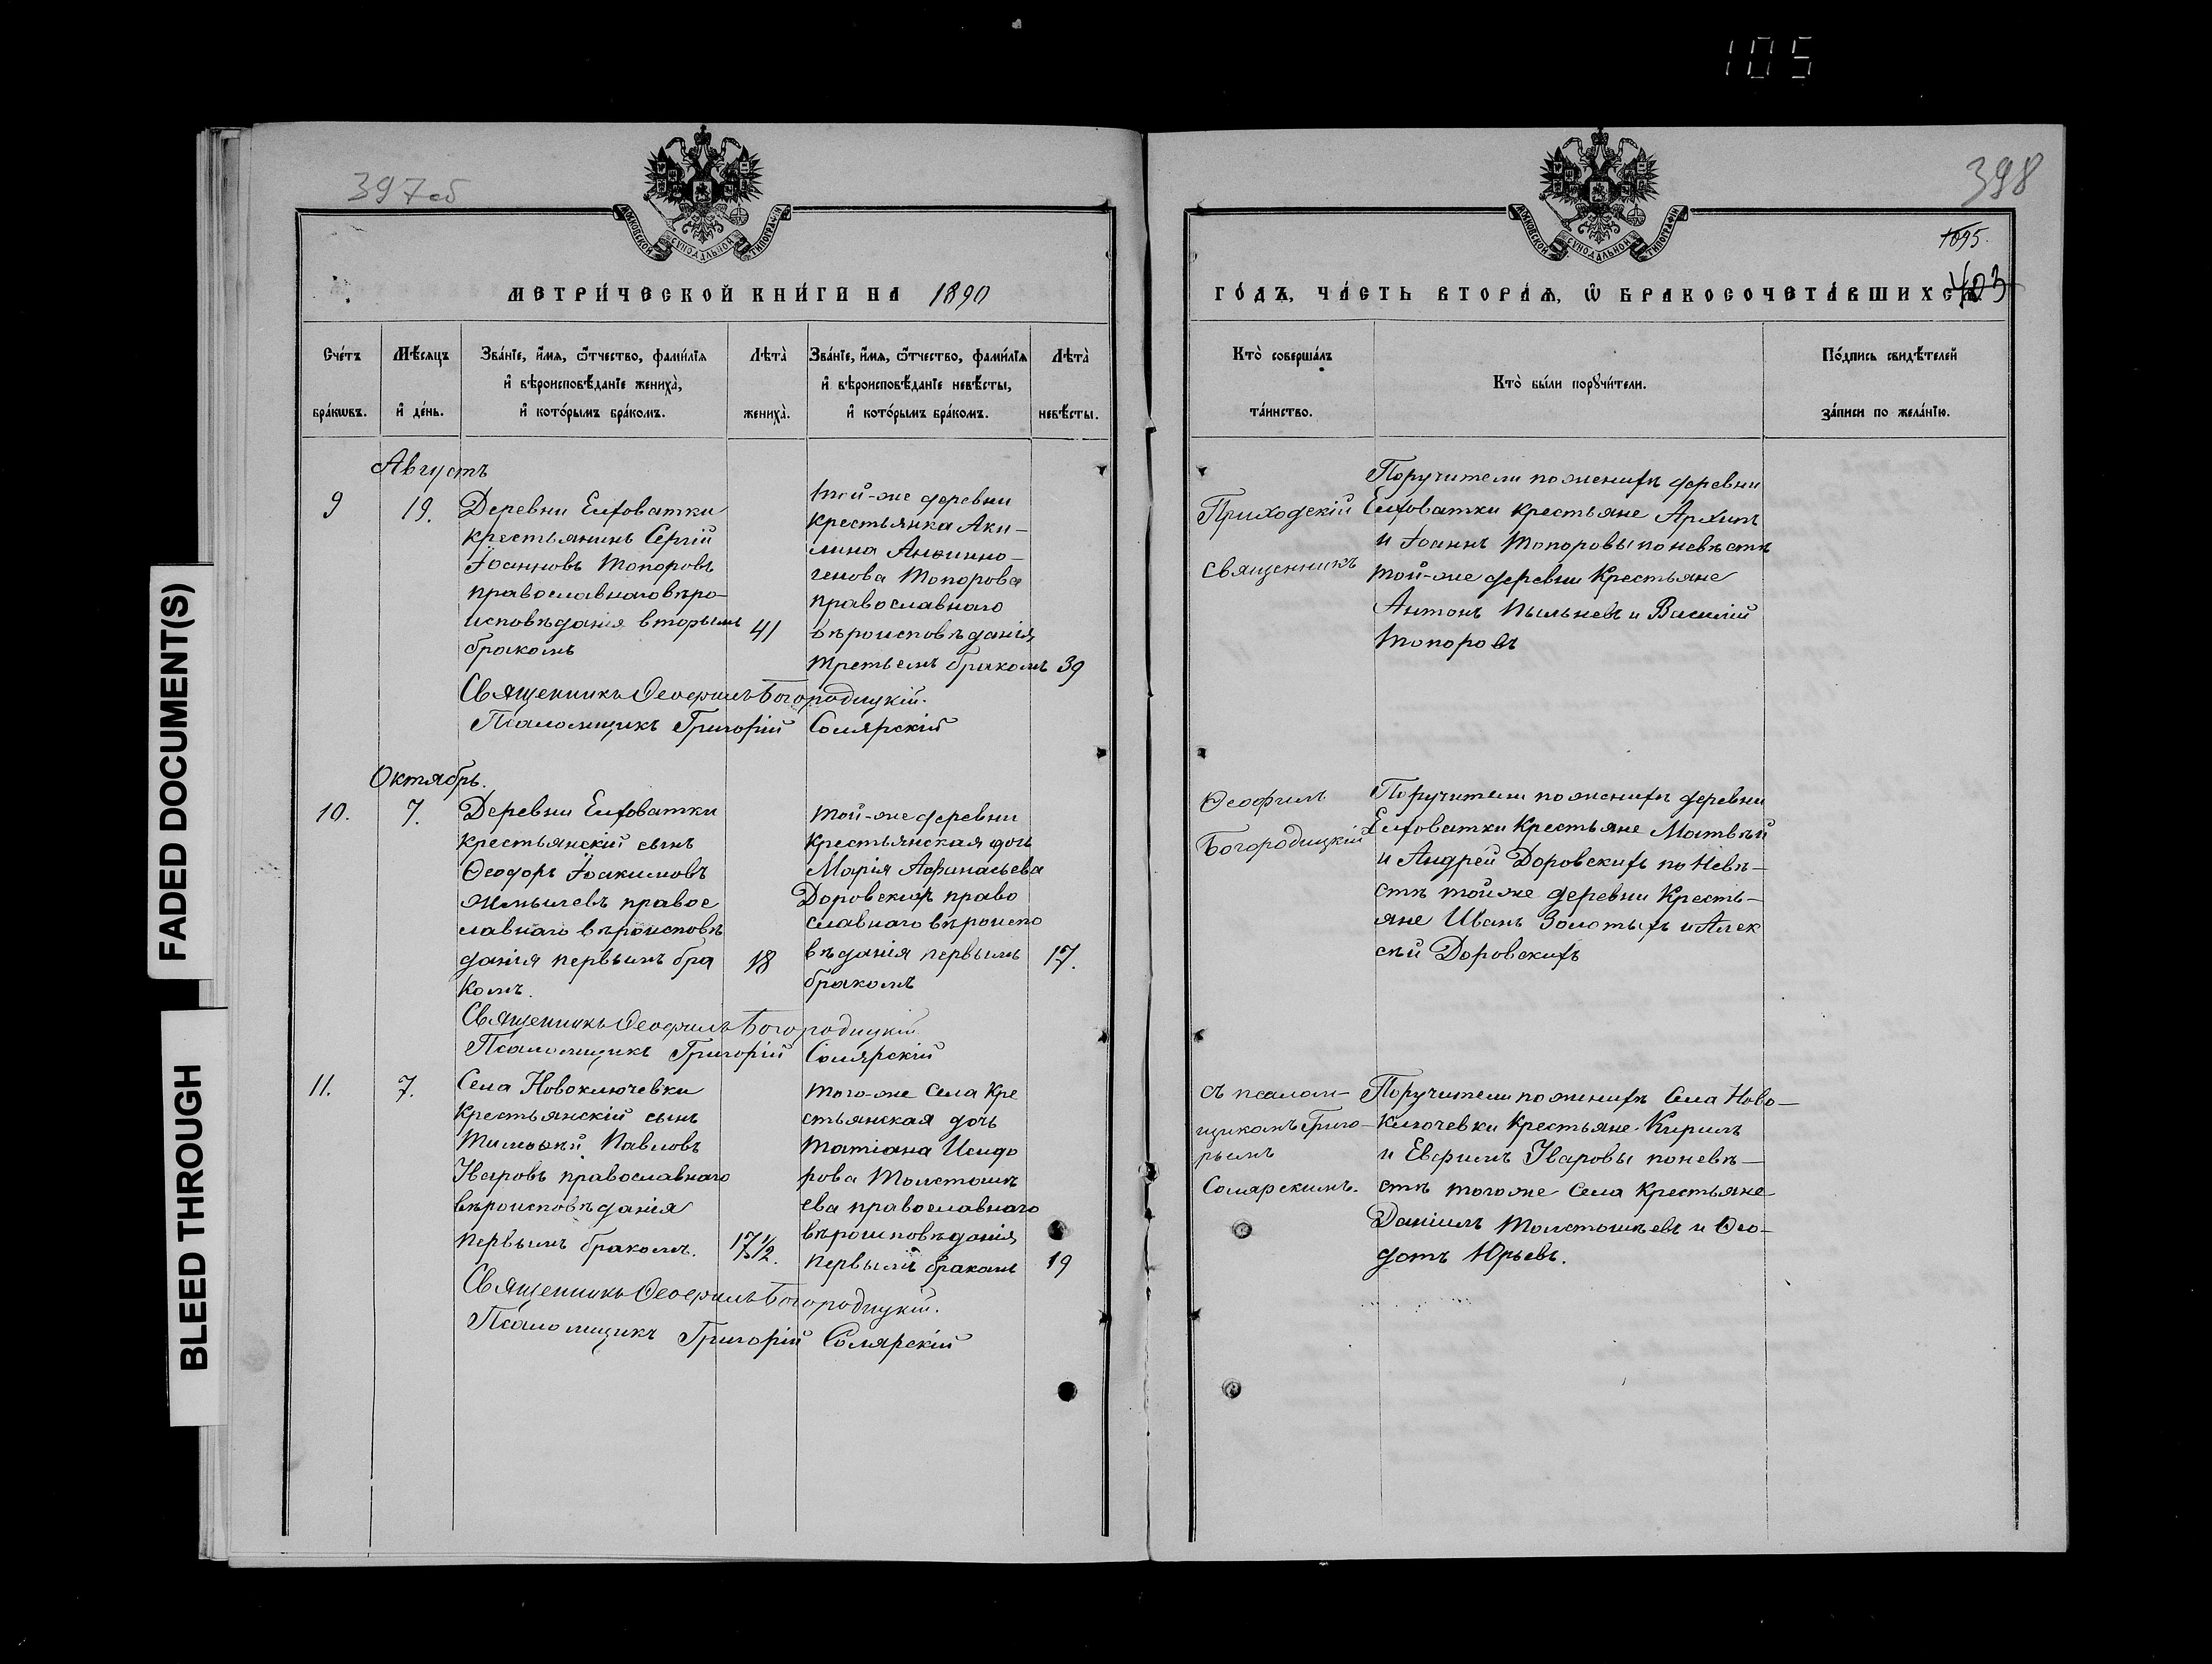 105
FADED DOCUMENT(S)
BLEED THROUGH
397 об
МОСКОВСКОЙ СѴНОДАЛЬНОЙ ТИПОГРАФІИ
МЕТРИ́ЧЕСКОЙ КНИ́ГИ НА 1890
Сче́тъ бра́кѡвъ.
Мѣ́сяцъ и҆ де́нь.
Зва́нїе, и҆́мя, ѻ҆́тчество, фами́лїя
и҆ вѣроисповѣ́данїе жениха̀,
и҆ кото́рымъ бра́комъ.
Лѣта̀ жениха̀.
Зва́нїе, и҆́мя, ѻ҆́тчество, фами́лїя
и҆ вѣроисповѣ́данїе невѣ́сты,
и҆ кото́рымъ бра́комъ.
Лѣта̀ невѣ́сты.
Августъ
9
19.
Деревни Елховатки
крестьянинъ Сергій
Іоанновъ Топоровъ
православнаго вѣро-
исповѣданія вторымъ
бракомъ
41
той-же деревни
крестьянка Аки-
лина
Топорова
православнаго
вѣроисповѣданія
третьемъ бракомъ
39
Священникъ Ѳеофилъ Богородицкій.
Псаломщикъ Григорій Солярскій
Октябрь.
10.
7.
Деревни Елховатки
крестьянскій сынъ
Ѳеодоръ Іоакимовъ
правос
лавнаго вѣроисповѣ
данія первымъ бра
комъ.
18
той-же деревни
крестьянская дочь
Марія Афанасьева
Доровскихъ право
славнаго вѣроиспо
вѣданія первымъ
бракомъ
17.
Священникъ Ѳеофилъ Богородицкій
Псаломщикъ Григорій Солярскій
11.
7.
Села Новоключевки
Крестьянскій сынъ
Тимоѳей Павловъ
Уваровъ православнаго
вѣроисповѣданія
первымъ бракомъ.
17 1/2.
того-же Села Кре
стьянская дочь
Татіана Исидо
рова Толстошѣ
ева православнаго
вѣроисповѣданія
первымъ бракомъ
19
Священникъ Ѳеофилъ Богородицкій.
Псаломщикъ Григорій Солярскій
398
1095.
403
МОСКОВСКОЙ СѴНОДАЛЬНОЙ ТИПОГРАФІИ
ГО́ДЪ, ЧА́СТЬ ВТОРА́Ѧ, Ѡ҆ БРАКОСОЧЕТА́ВШИХСѦ.
Кто̀ соверша́лъ
та́инство.
Кто̀ бы́ли порꙋчи́тели.
По́дпись свидѣ́телей
за́писи по жела́нїю.
Приходскій
священникъ
Поручители по женихѣ деревни
Елховатки крестьяне Архипъ
и Іоаннъ Топоровы по невѣстѣ
той-же деревни Крестьяне
Антонъ Пыльневъ и Василій
Топоровъ
Ѳеофилъ
Богородицкій
Поручители по женихѣ деревни
Елховатки Крестьяне Матвѣй
и Андрей Доровскихъ по Невѣ-
стѣ той же деревни Кресть-
яне Иванъ Золотыхъ и Алек
сѣй Доровскихъ
съ псалом-
щикомъ Григо-
рьемъ
Солярскимъ.
Поручители по женихѣ Села Ново-
Ключевки Крестьяне Кирилъ
и Евфимъ Уваровы по невѣ-
стѣ того же Села Крестьяне
Даніилъ Толстошѣевъ и Ѳео-
дотъ Юрьевъ.